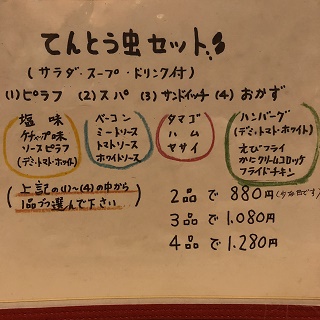 てんとう虫セット
(サラダ・スープ・ドリンク付)
(1)ピラフ (2)スパ (3)サンドイッチ (4)おかず
塩味
ケチャップ味
ソースピラフ
(デミ・トマト・ホワイト)
ベーコン
ミートソース
トマトソース
ホワイトソース
タマゴ
ハム
ヤサイ
ハンバーグ
(デミ・トマト・ホワイト)
えびフライ
かにクリームコロッケ
フライドチキン
(上記の(1)~(4)の中から
1品ずつ選んで下さい)
2品で 880円
3品で 1.080円
4品で 1.280円